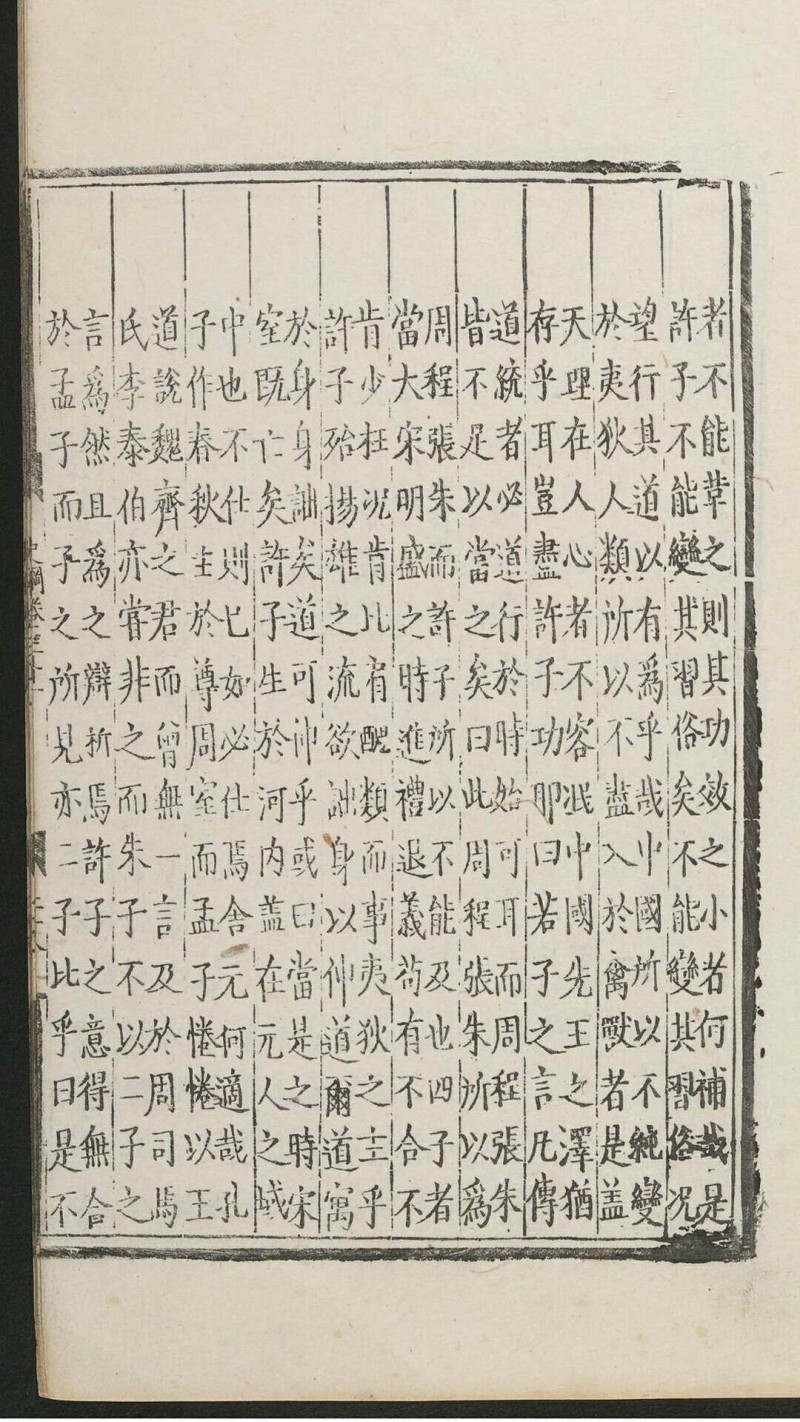 者不能革之則其功效之小者何補哉是
許子不能變其習俗矣不能變其習俗况
望行其道以有爲乎哉中國所以不純變
於夷狄人類所以不盡入於禽獸者是盖
天理在人心者不容泯中國先王之澤猶
存乎耳豈盡許子功耶曰若子之言凡傳
道統者必道行於時始可耳而周程張朱
皆不足以當之矣曰此周程張朱所以爲
周程張朱而許子所以不能及也四子者
當大宋明盛之時進禮退義苟有不合不
肯少枉况肯比有醜類而事夷狄之主乎
許子殆揚雄之流欲詘身以伸道爾道寓
於身身詘矣道可伸乎或曰當是之時宋
室既亡矣許子生於河内盖在元人之域
中也不仕則已如必仕焉舍元何適哉孔
子作春秋主於尊周室而孟子惓惓以王
道說魏齊之君而曾無一言及於周司馬
氏李泰伯亦嘗非之而朱子不以二子之
言爲然且爲之辯析焉許子之意得無合
於孟子而子之所見亦二子此乎曰是不